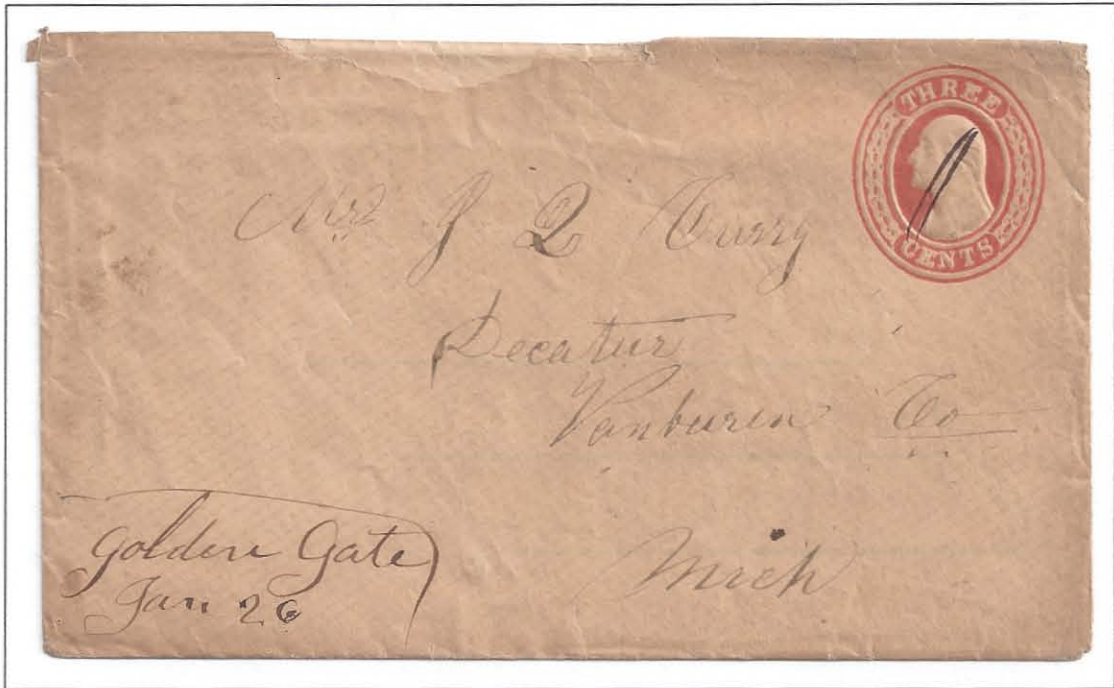 THREE
CENTS
Mr J Q
Decatur
Vanburen Co
Mich
Golden Gate
Jan 26